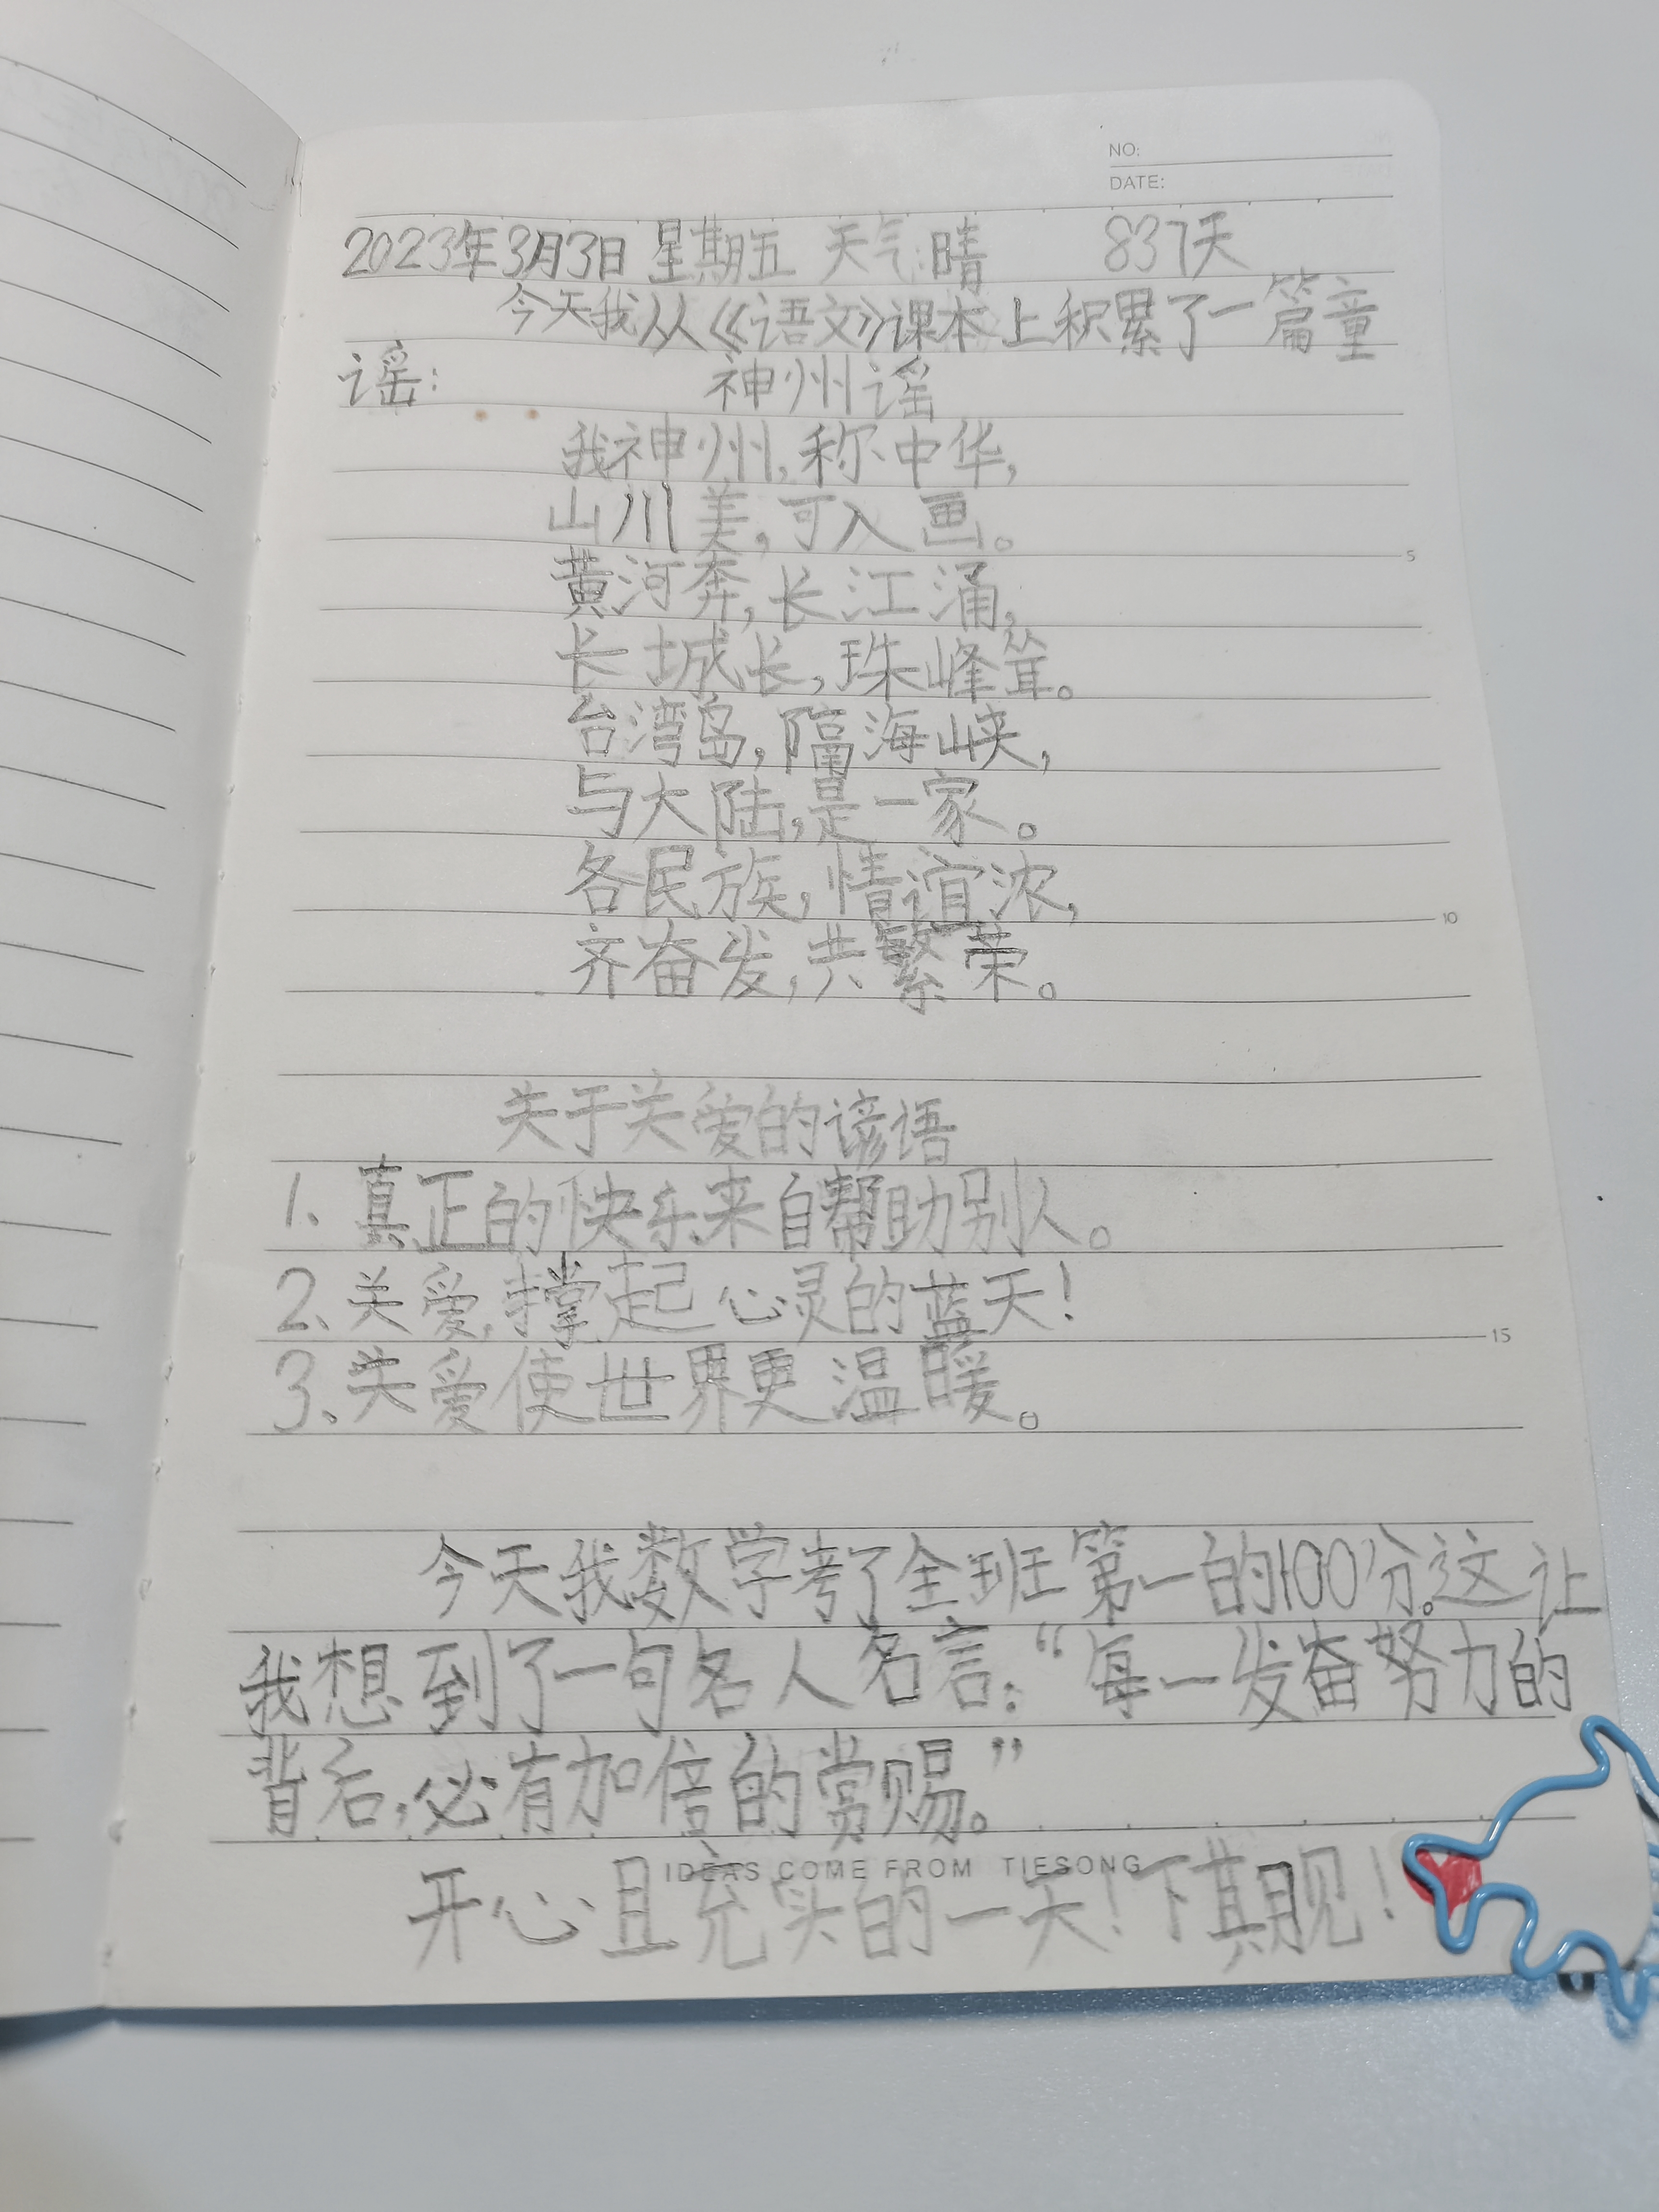 NO:
DATE:
2023年3月3日 星期五 天气:晴 837天
今天我从《语文》课本上积累了一篇童
谣: 神州谣
我神州,称中华,
山川美,可入画。
黄河奔,长江涌,
长城长,珠峰耸。
台湾岛,隔海峡,
与大陆,是一家。
各民族,情谊浓,
齐奋发,共繁荣。
关于关爱的谚语
1、真正的快乐来自帮助别人。
2、关爱,撑起心灵的蓝天!
3、关爱使世界更温暖。
今天我数学考了全班第一的100分。这让
我想到了一句名人名言:“每一发奋努力的
背后,必有加倍的赏赐。”
IDEAS COME FROM TIESONG
开心且充实的一天!下期见!
5
10
15